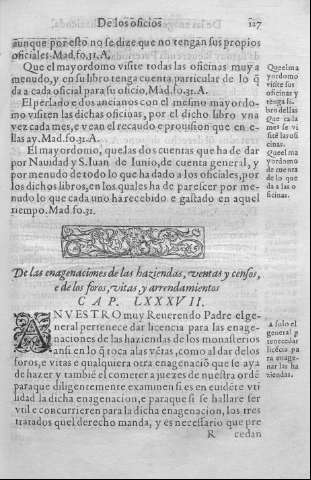 De los oficios 127
aunque por esto no se dize que no tengan sus propios
oficiales. Mad. fo. 31. A.
Que el mayordomo visite todas las oficinas muy a
menudo, y en su libro tenga cuenta particular de lo q̃
da a cada oficial para su oficio. Mad. fo. 31. A.
El perlado e dos ancianos con el mesmo mayordo-
mo visiten las dichas oficinas, por el dicho libro vna
vez cada mes, e vean el recaudo e prouision que en e-
llas ay. Mad. fo. 31. A.
El mayordomo, que las dos cuentas que ha de dar
por Nauidad y S. Iuan de Iunio, de cuenta general, y
por menudo de todo lo que ha dado a los oficiales, por
los dichos libros, en los quales ha de parescer por me-
nudo lo que cada uno ha recebido e gastado en aquel
tiempo. Mad. fo. 31.
Que el ma
yordomo
visite sus
oficinas y
tenga li-
bro dellas
Que cada
mes se vi
site las ofi
cinas.
Que el ma
yordomo
de cuenta
de lo que
da a las o
ficinas.
De las enagenaciones de las haziendas, ventas y censos,
e de los foros, vitas, y arrendamientos
CAP. LXXXVII.
A NVESTRO muy Reuerendo Padre el ge-
neral pertenece dar licencia para las enage-
naciones de las haziendas de los monasterios
ansi en lo q̃ toca a las vẽtas, como al dar de los
foros, e vitas e qualquiera otra enagenaciõ que se aya
de hazer y tambiẽ el cometer a juezes de nuestra ordẽ
para que diligentemente examinen si es en euidẽte vti
lidad la dicha enagenacion, e para que si se hallare ser
vtil e concurrieren para la dicha enagenacion, los tres
tratados quel derecho manda, y es necessario que pre
R cedan
A solo el
general p
tenece dar
licẽcia pa
ra enage-
nar las ha
ziendas.